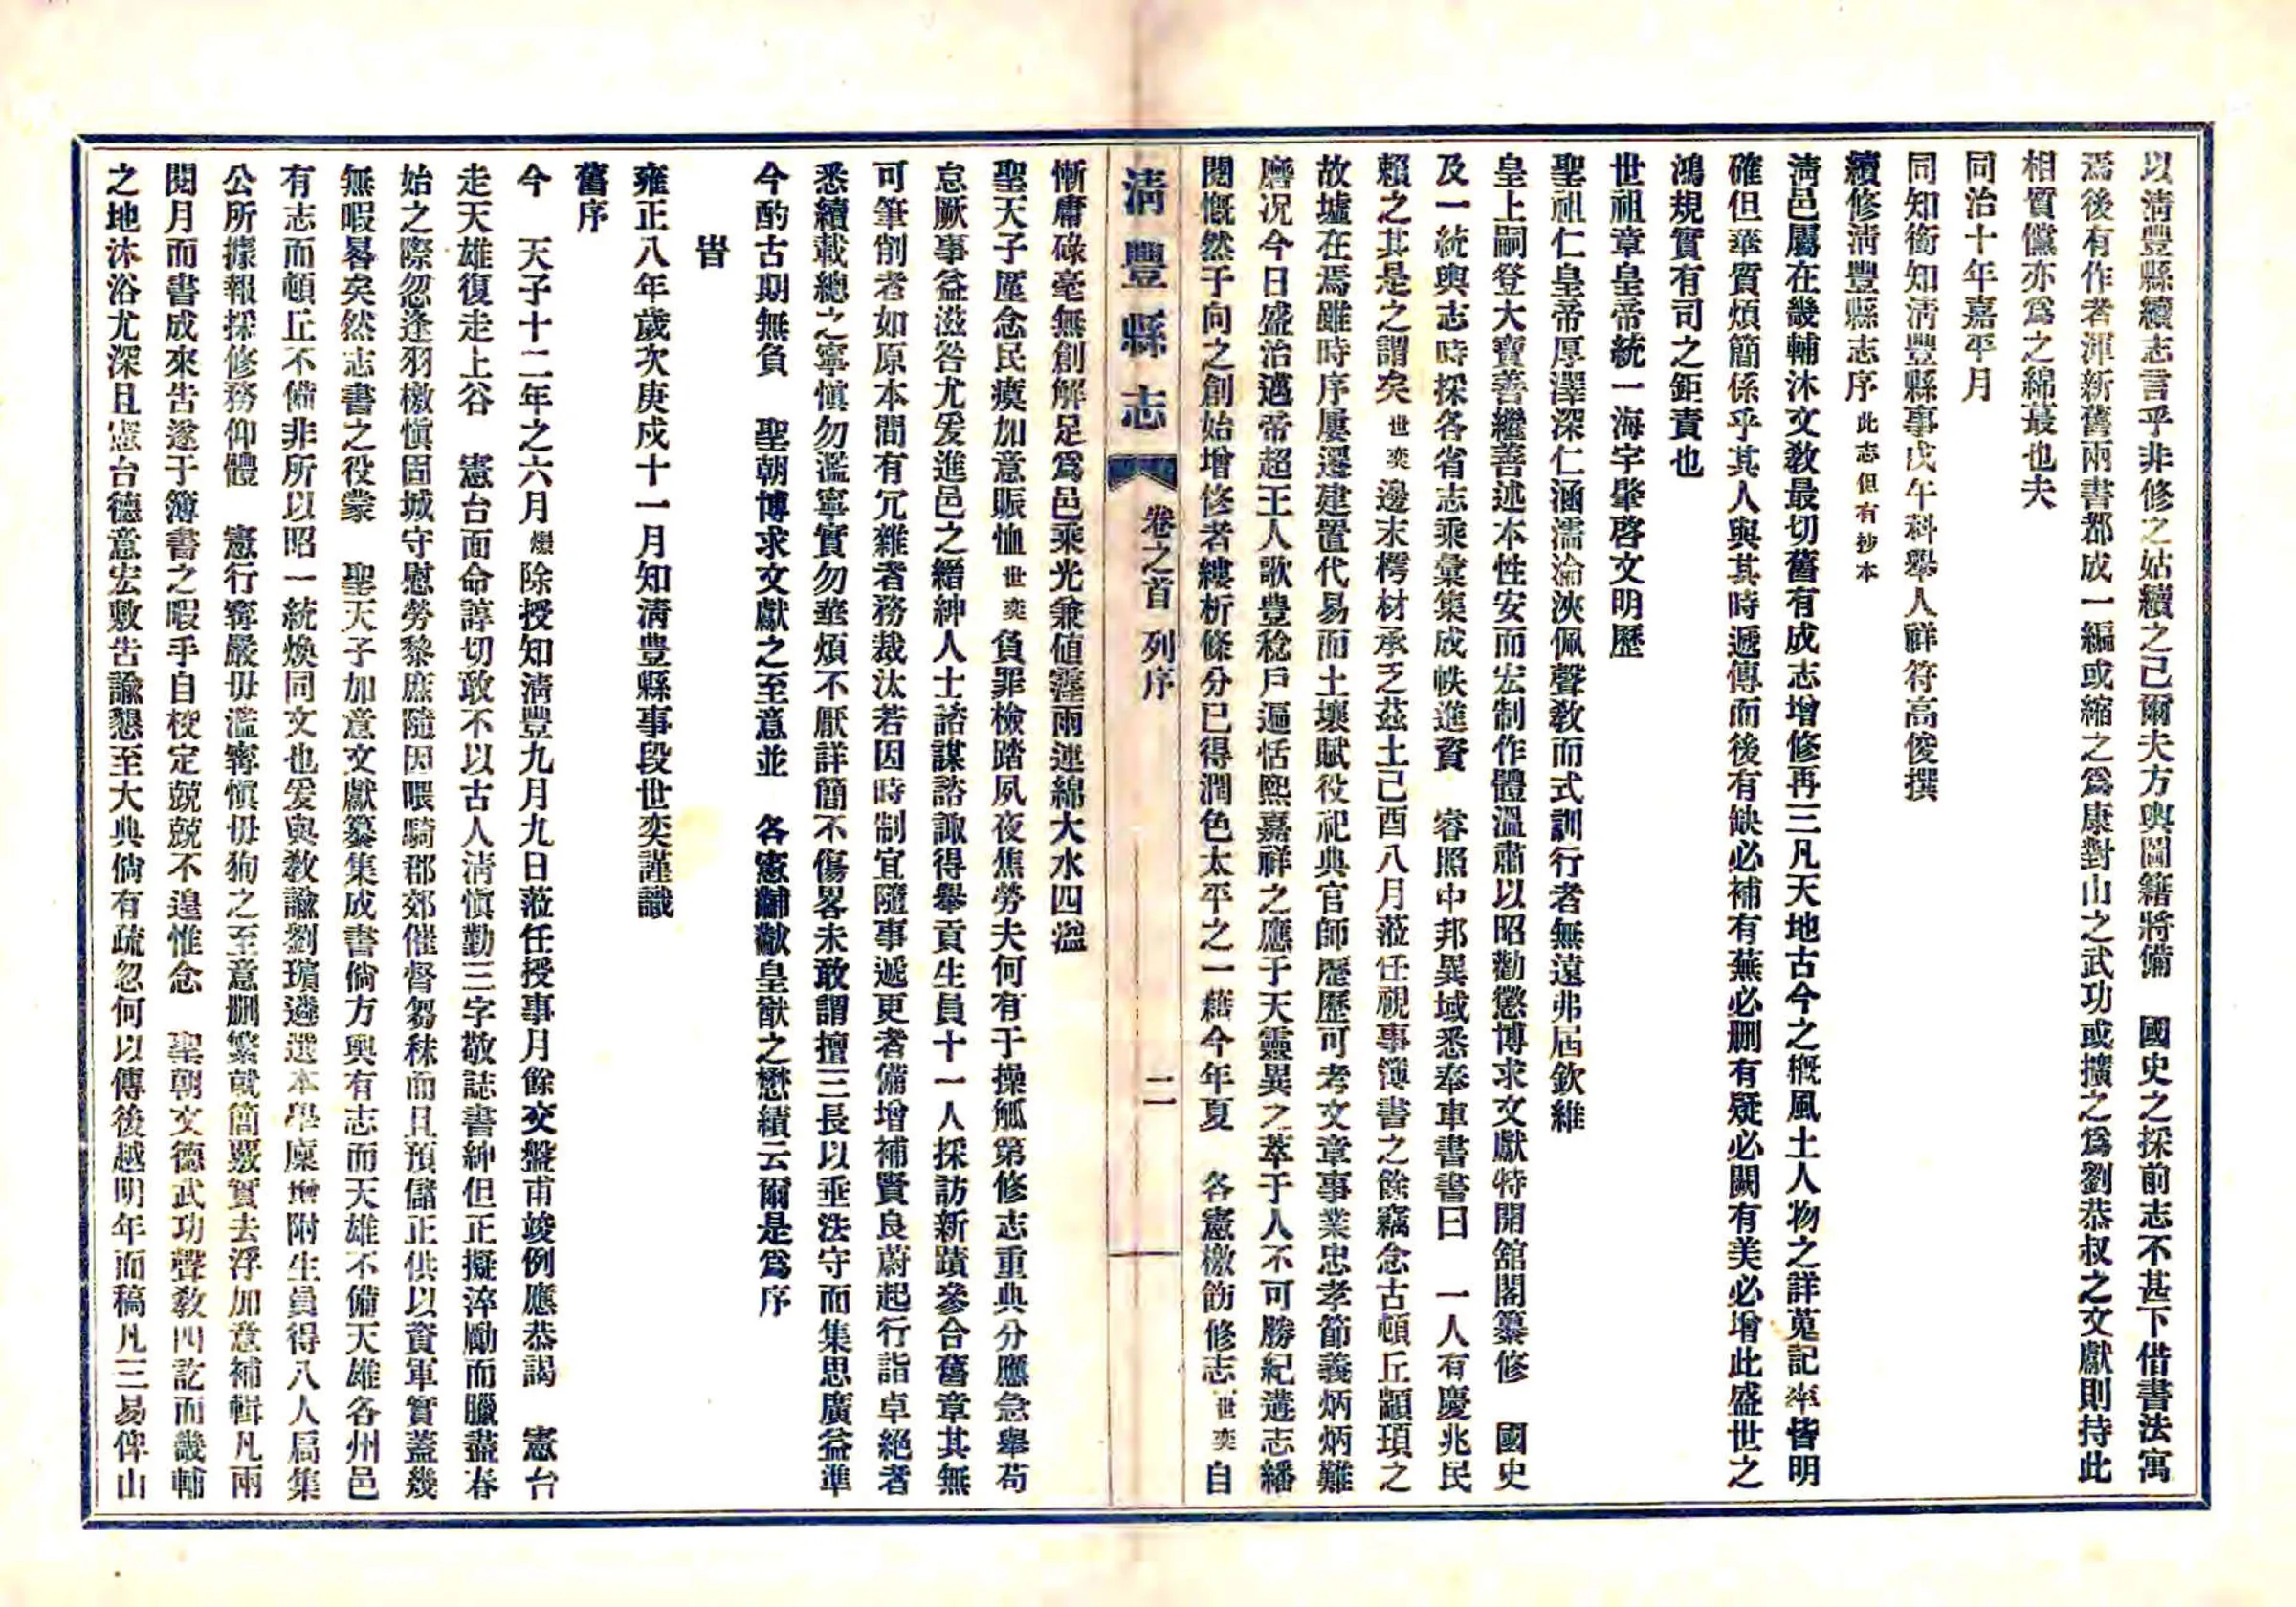 以清豐縣續志言乎非修之姑續之已爾夫方輿圖籍將備　國史之採前志不甚下借書法寓
焉後有作者渾新舊兩書郡成一編或縮之爲康對山之武功或擴之爲劉恭叔之文獻則持此
相質儻亦爲之綿蕞也夫
同治十年嘉平月
同知銜知清豐縣事戊午科舉人祥符高俊撰
續修清豐縣志序此志但有抄本
清邑屬在畿輔沐文敎最切舊有成志增修再三凡天地古今之槪風土人物之詳蒐記率皆明
確但華質煩簡係乎其人與其時遞傳而後有缺必補有蕪必删有疑必闕有美必增此盛世之
鴻規實有司之鉅責也
世祖章皇帝統一海宇肇啓文明歷
聖祖仁皇帝厚澤深仁涵濡淪浹佩聲敎而式訓行者無遠弗屆欽維
皇上嗣登大寶善繼善述本性安而宏制作體溫肅以昭勸懲博求文獻特開舘閣纂修　國史
及一統輿志時採各省志乘彙集成帙進資　睿照中邦異域悉奉車書書曰　一人有慶兆民
賴之其是之謂矣世奕邊末樗材承乏茲土己酉八月蒞任視事簿書之餘竊念古頓丘顓頊之
故墟在焉雖時序屢遷建置代易而土壤賦役祀典官師歷歷可考文章事業忠孝節義炳炳難
磨况今日盛治邁帝超王人歌豊稔戶逼恬熙嘉祥之應于天靈異之萃于人不可勝紀遘志繙
閱慨然于向之創始增修者縷析條分已得潤色太平之一藉今年夏　各憲檄飭修志世奕自
清豐縣志　卷之首　列序　二
慚庸碌毫無創解足爲邑乘光兼値霪雨連綿大水四溢
聖天子廑念民瘼加意賑恤世奕負罪檢踏夙夜焦勞夫何有于操觚第修志重典分應急舉苟
怠厥事益滋咎尤爰進邑之縉紳人士諮謀諮諏得舉貢生員十一人採訪新蹟參合舊章其無
可筆削者如原本間有冗雜者務裁汰若因時制宜隨事遞更者備增補賢良蔚起行詣卓絕者
悉續載總之寧愼勿濫寧實勿華煩不厭詳簡不傷畧未敢謂擅三長以垂法守而集思廣益準
今酌古期無負　聖朝博求文獻之至意並　各憲黼黻皇猷之懋績云爾是爲序
旹
雍正八年歲次庚戌十一月知清豊縣事段世奕謹識
舊序
今　天子十二年之六月燝除授知清豐九月九日蒞任授事月餘交盤甫竣例應恭謁　憲台
走天雄復走上谷　憲台面命諄切敢不以古人清愼勤三字敬誌書紳但正擬淬勵而臘盡春
始之際忽逢羽檄愼固城守慰勞黎庶隨因喂騎郡郊催督芻秣而且預儲正供以資軍實蓋幾
無暇晷矣然志書之役蒙　聖天子加意文獻纂集成書倘方輿有志而天雄不備天雄各州邑
有志而頓丘不備非所以昭一統煥同文也爰與敎諭劉璸遴選本學廩增附生員得八人扃集
公所據報採修務仰體　憲行寗嚴毋濫寗愼毋狥之至意删繁就簡覈實去浮加意補輯凡兩
閱月而書成來告遂于簿書之暇手自校定兢兢不遑惟念　聖朝文德武功聲敎四訖而畿輔
之地沐浴尤深且憲台德意宏敷告諭懇至大典倘有疏忽何以傳後越明年而稿凡三易俾山